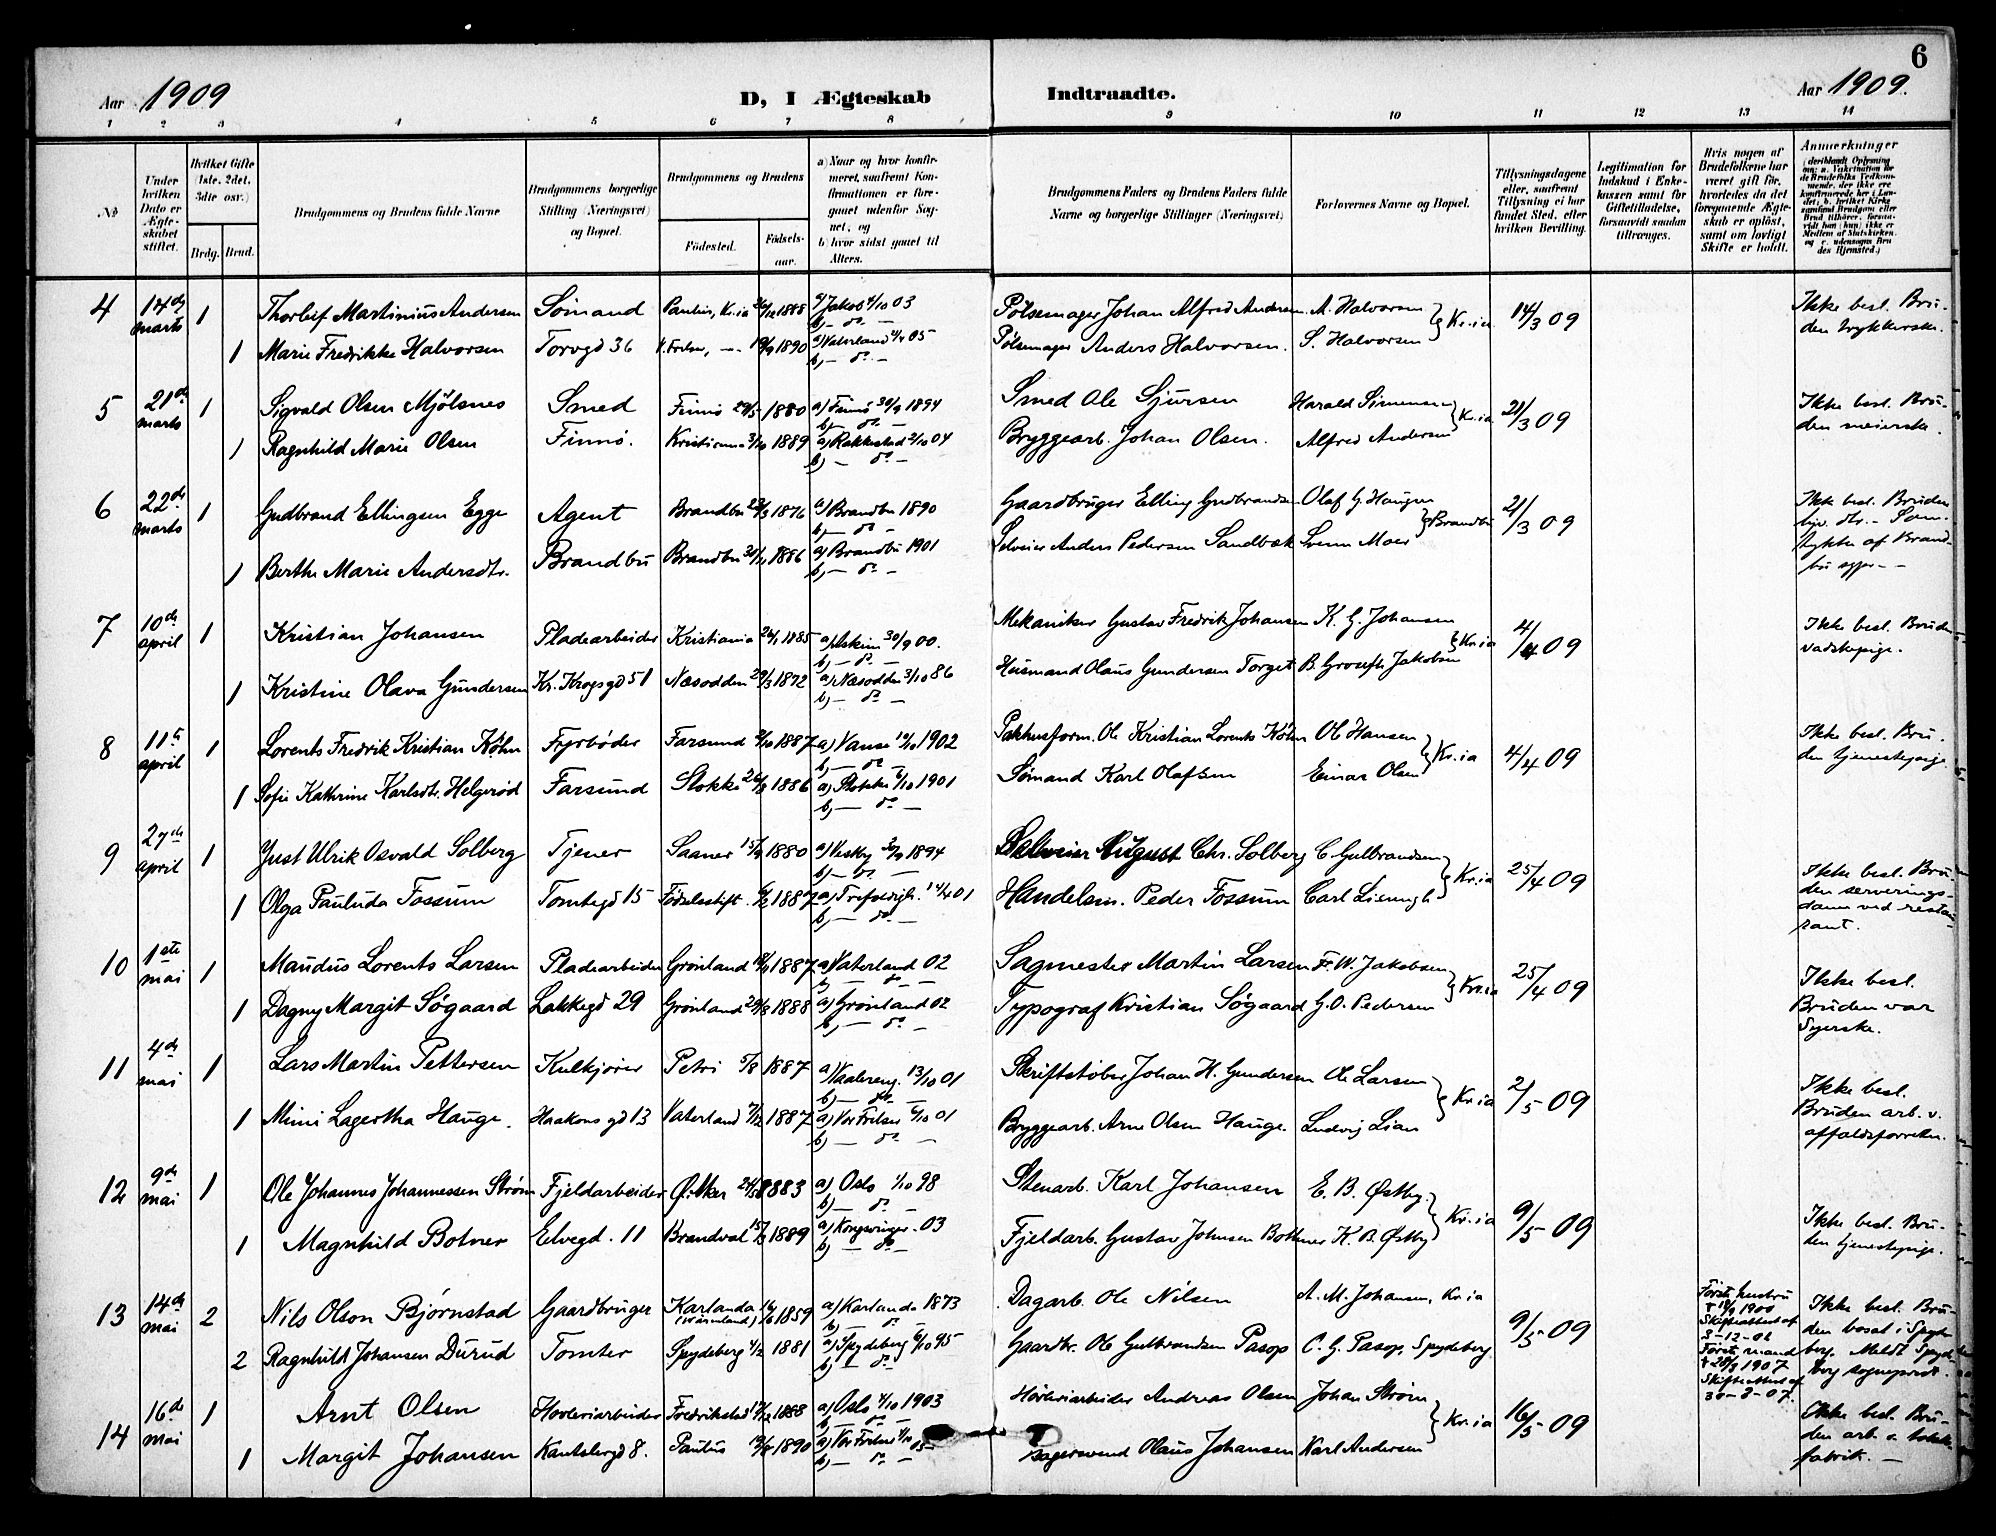 6
Aar 1909 D, I Ægteskab Indtraadte. Aar 1909.
1 2 3 4 5 6 7 8 9 10 11 12 13 14
No
Under hvilken Dato er Ægteskabet stiftet.
Hvilket Gifte (1ste, 2det, 3die osv.) Brdg. Brud.
Brudgommens og Brudens fulde Navne
Brudgommens borgerlige Stilling (Næringsvei) og Bopæl.
Brudgommens og Brudens Fødested. Fødselsaar.
a) Naar og hvor konfirmeret, saafremt Konfirmationen er foregaaet udenfor Sognet, og b) hvor sidst gaaet til Alters.
Brudgommens Faders og Brudens Faders fulde Navne og borgerlige Stillinger (Næringsvei)
Forlovernes Navne og Bopæl.
Tillysningsdagene eller, saafremt Tillysning ei har fundet Sted, efter hvilken Bevilling.
Legitimation for Indskud i Enkekassen samt for Giftetilladelse, forsaavidt saadan tiltrænges.
Hvis nogen af Brudefolkene har været gift før, hvorledes da det foregaaende Ægteskab er opløst, samt om lovligt Skifte er holdt.
Anmerkninger
4 14de marts 1 Thorleif Martinius Andersen Sømand Paulus, Kr.ia 1888 a) Jakob 4/10 03 Pølsemager Johan Alfred Andersen A. Halvorsen Kr.ia 14/3 09 Ikke besl. Bruden trykkerske.
1 Marie Fredrikke Halvorsen Torvgd 36 1890 a) Vaterland 05 Pølsemager Anders Halvorsen. S. Halvorsen
5 21de marts 1 Sigvald Olsen Mjölsnes Smed Finnö 29/5 1880 a) Finnö 30/9 1894 Smed Ole Sjursen Harald Simensen Kr.ia 21/3 09 Ikke besl. Bruden meierske.
1 Ragnhild Marie Olsen Finnö. Kristiania 1889 a) Rakkestad 2/10 04 Bryggearb. Johan Olsen. Alfred Andersen
6 22de marts 1 Gudbrand Ellingsen Egge Agent Brandbu 23/3 1876 a) Brandbu 1890 Gaardbruger Elling Gudbrandsen Olaf G. Haugen Brandbu 21/3 09 Ikke besl. Bruden hjv. dtr. - Samtykke af Brandbu sgpr. -
1 Berthe Marie Andersdtr. Brandbu Brandbu 1886 a) Brandbu 1901 Selveier Anders Pedersen Sandbæk Svenn Moer
7 10de april 1 Kristian Johansen Pladearbeider Kristiania 26/1 1885 a) Askim 30/9 00. Mekaniker Gustav Fredrik Johansen K. G. Johansen Kr.ia 4/4 09 Ikke besl. Bruden vadskepige.
1 Kristine Olava Gundersen Kr. Krogsgd 51 Næsodden 29/3 1872 a) Næsodden 3/10 86 Husmand Olaus Gundersen Torget B. Jakobsen
8 11te april 1 Lorents Fredrik Kristian Köhn Fyrbøder Farsund 1887 a) Vanse 12/10 1902 Pakhusform. Ole Kristian Lorents Köhn Ole Hansen Kr.ia 4/4 09 Ikke besl. Bruden tjenestepige.
1 Sofie Kathrine Karlsdtr. Helgerød Farsund Stokke 26/8 1886 a) Stokke 6/10 1901 Sømand Karl Olafsen Einar Olsen
9 27de april 1 Just Ulrik Osvald Solberg Tjener Saaner 15/9 1880 a) Vestby 30/9 1894 Selveier August Chr. Solberg C. Gulbrandsen Kr.ia 25/4 09 Ikke besl. Bruden serveringsdame ved restaurant.
1 Olga Pauluda Fossum Tomtegd 15 Fødselsstift. 1887 a) Trefoldigh. 14/4 01 Handelsm. Peder Fossum Carl
10 1ste mai 1 Maudus Lorents Larsen Pladearbeider Grønland 1887 a) Vaterland 02 Sagmester Martin Larsen Fr. W. Jakobsen Kr.ia 25/4 09 Ikke besl. Bruden var Syerske.
1 Dagny Margit Søgaard Lakkegd 29 Grønland 29/8 1888 a) Grønland 02 Typograf Kristian Søgaard G. O. Pedersen
11 4de mai 1 Lars Martin Pettersen Kulkjører Petri 5/8 1887 a) Vaalereng. 13/10 01 Skriftstøber Johan H. Gundersen Ole Larsen Kr.ia 2/5 09 Ikke besl. Bruden arb. v. affaldsforretn.
1 Mimi Lagertha Hauge. Haakons gd 13 Vaterland 7/12 1887 a) Vor Frelser 6/10 01 Bryggearb. Arne Olsen Hauge. Ludvig Lian
12 9de mai 1 Ole Johannes Johannessen Strøm Fjeldarbeider Ø. Aker 1883 a) Oslo 1/10 98 Stenarb. Karl Johansen E. B. Østby. Kr.ia 9/5 09 Ikke besl. Bruden tjenestepige.
1 Magnhild Botner Elvegd. 11 Brandval 1889 a) Kongsvinger. 03 Fjeldarb. Gustav Johnsen Bottner K. B. Østby
13 14de mai 2 Nils Olson Bjørnstad Gaardbruger Karlanda (Wärmland) 1859 a) Karlanda 1873 Dagarb. Ole Nilsen A. M. Johansen, Kr.ia 9/5 09 Første hustru † 1900 Skifteattest af 3-12-06 Ikke besl. Bruden bosat i Spydeberg. Meldt Spydeberg sogneprest.
2 Ragnhild Johansen Durud Tomter Spydeberg 4/2 1881 a) Spydeberg 6/10 95 Gaardbr. Ole Gulbrandsen Pasop C. G. Pasop, Spydeberg. Første mand † 1907 Skifteattest af 30-3-07.
14 16de mai 1 Arnt Olsen Høvleriarbeider Fredrikstad 1888 a) Oslo 4/10 1903 Høvleriarbeider Andreas Olsen Johan Strøm Kr.ia 16/5 09 Ikke besl. Bruden arb. v. fabrik. -
1 Margit Johansen Kantslergd 8. Paulus 1890 a) Vor Frelser 1/10 05 Bagersvend Olaus Johansen Karl Andersen